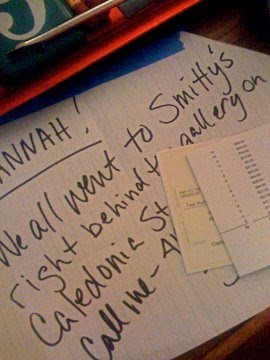 ANNAH!
We all went to Smitty's
right behind gallery on
Caledonia St
Call me -